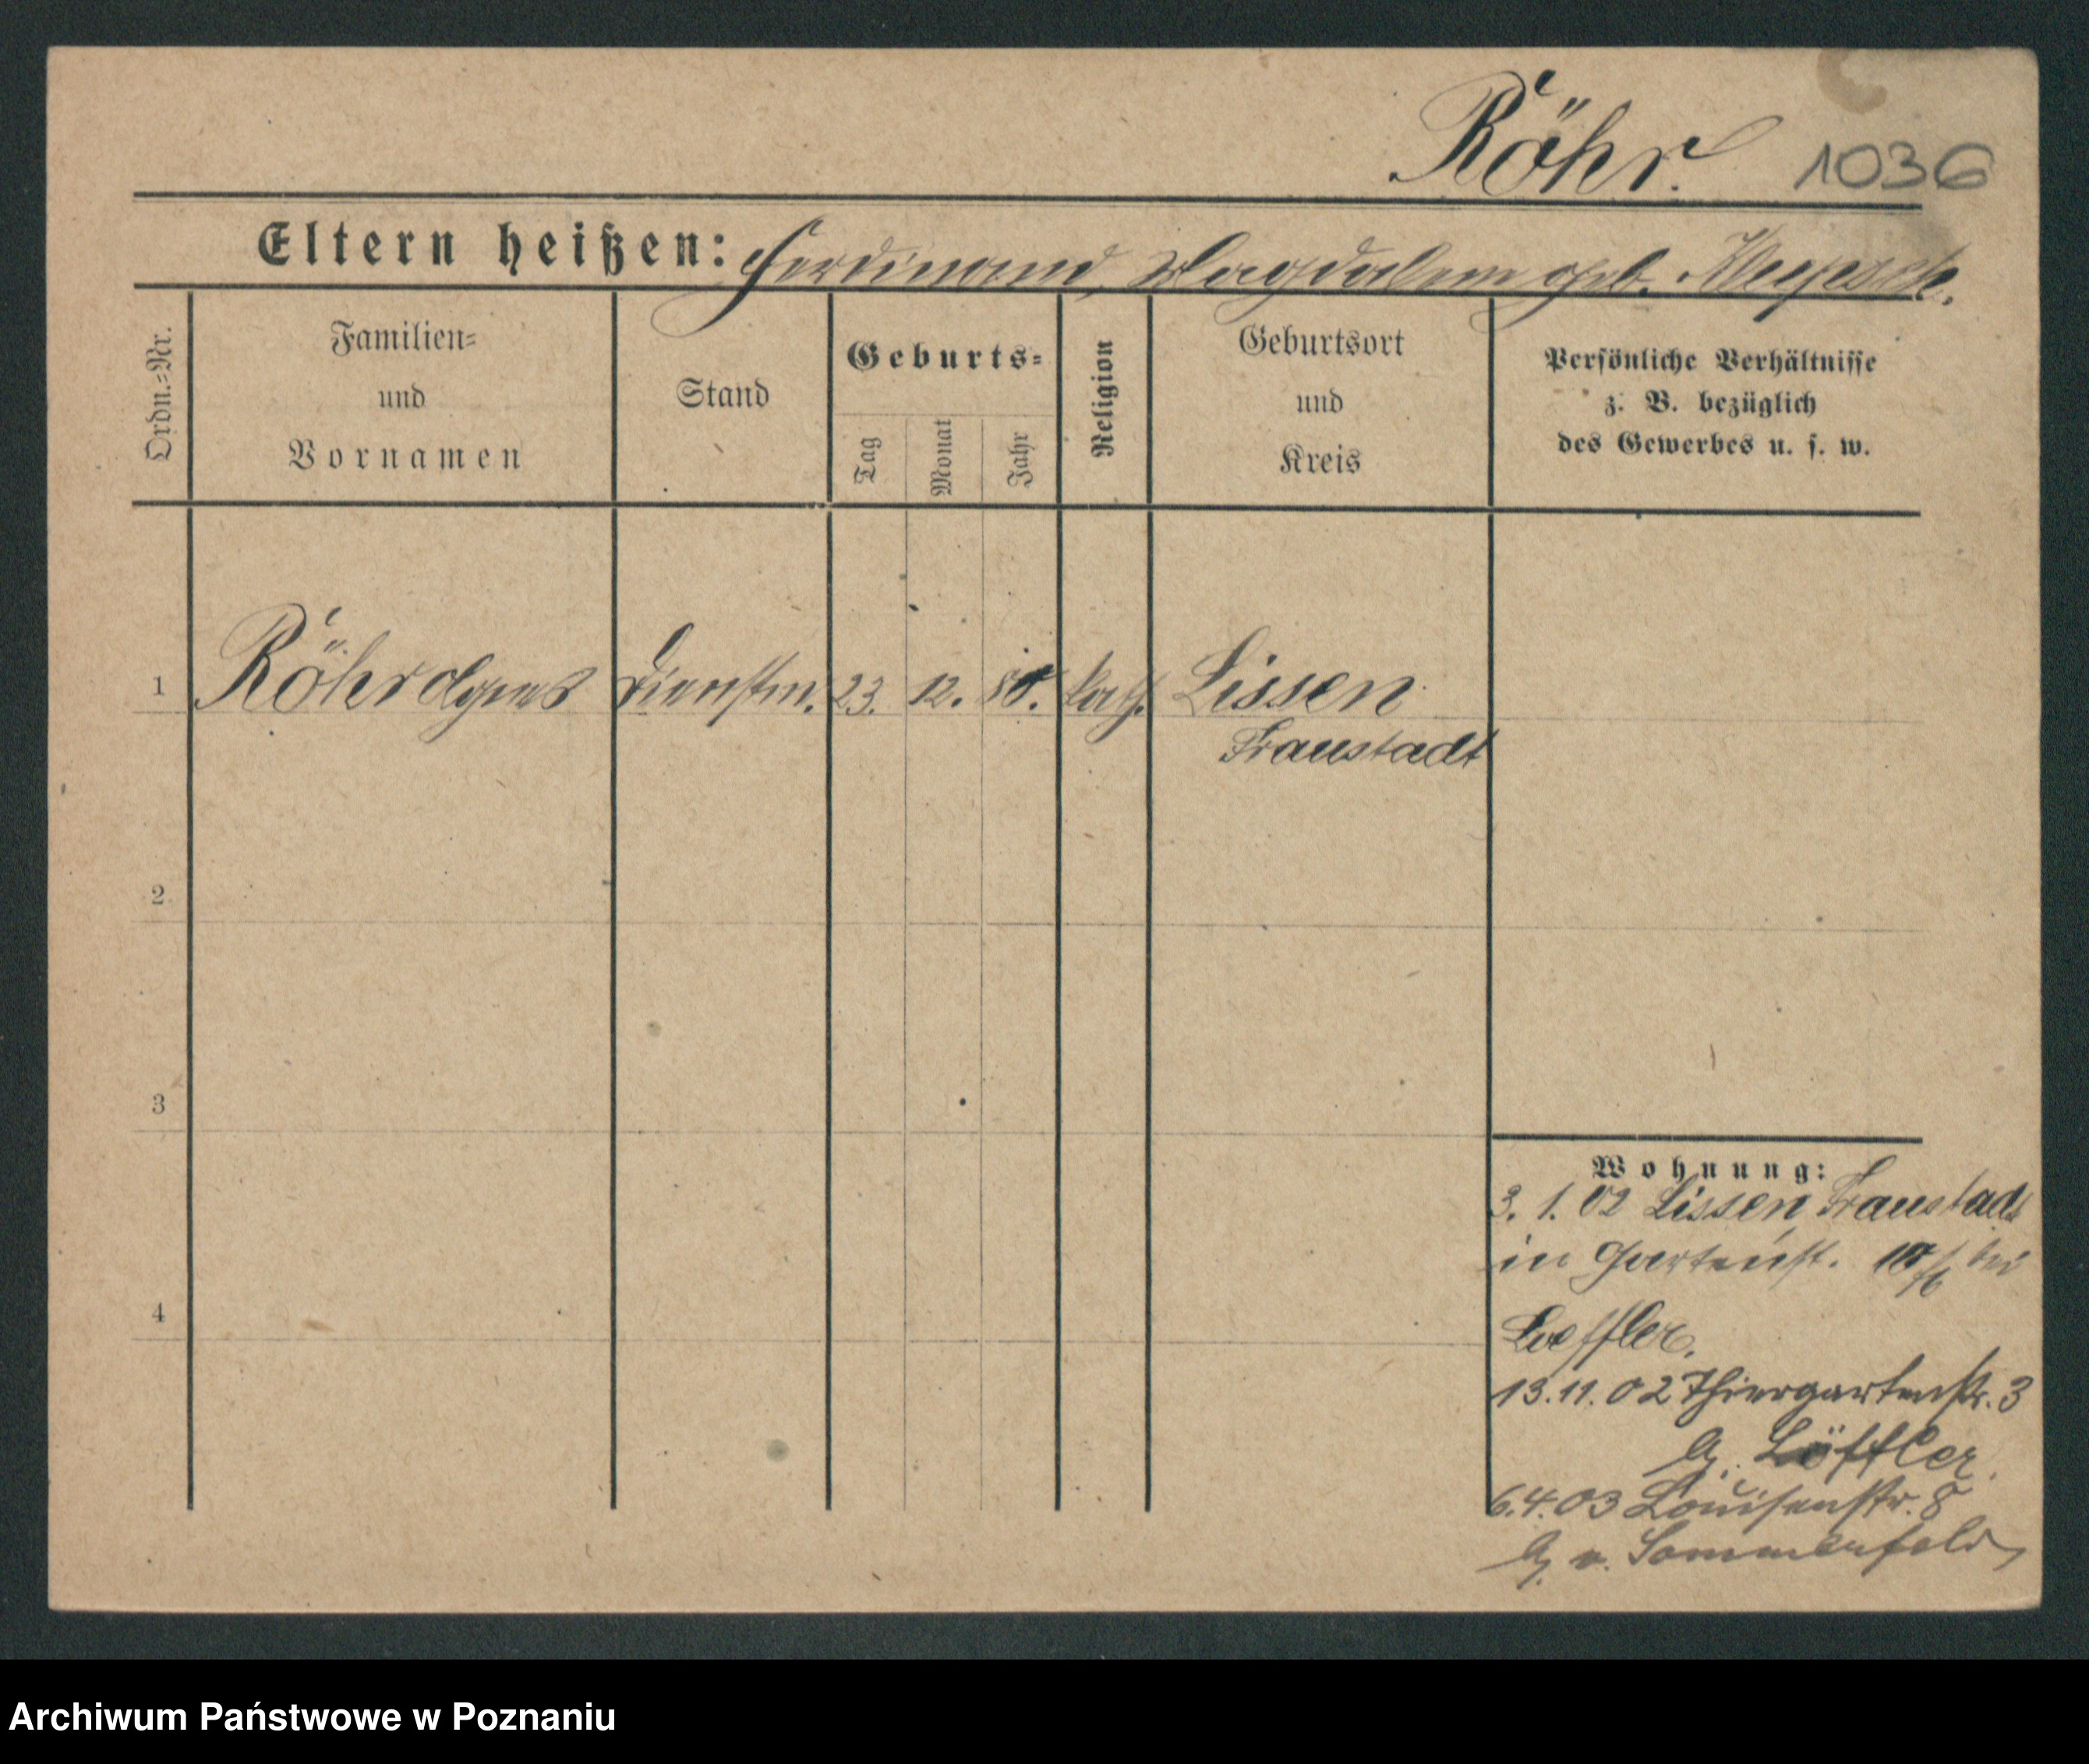 Röhr. 1036
Eltern heißen: Ferdinand, Magdalena geb.
Ordn.=Nr.
Familien=
und
Vornamen
Stand
Geburts=
Tag
Monat
Jahr
Religion
Geburtsort
und
Kreis
Persönliche Verhältnisse
z. B. bezüglich
des Gewerbes u. s. w.
1 Röhr Agnes Dienstm. 23. 12. kath. Lissen
Fraustadt
2
3
4
Wohnung:
3. 1. 02 Lissen Fraustadt
in Gartenst. bei
Loeffler.
13. 11. 02 Thiergartenstr. 3
b. Löffler.
6.4.03 Louisenstr. 8
b. v. Sommerfeld
Archiwum Państwowe w Poznaniu